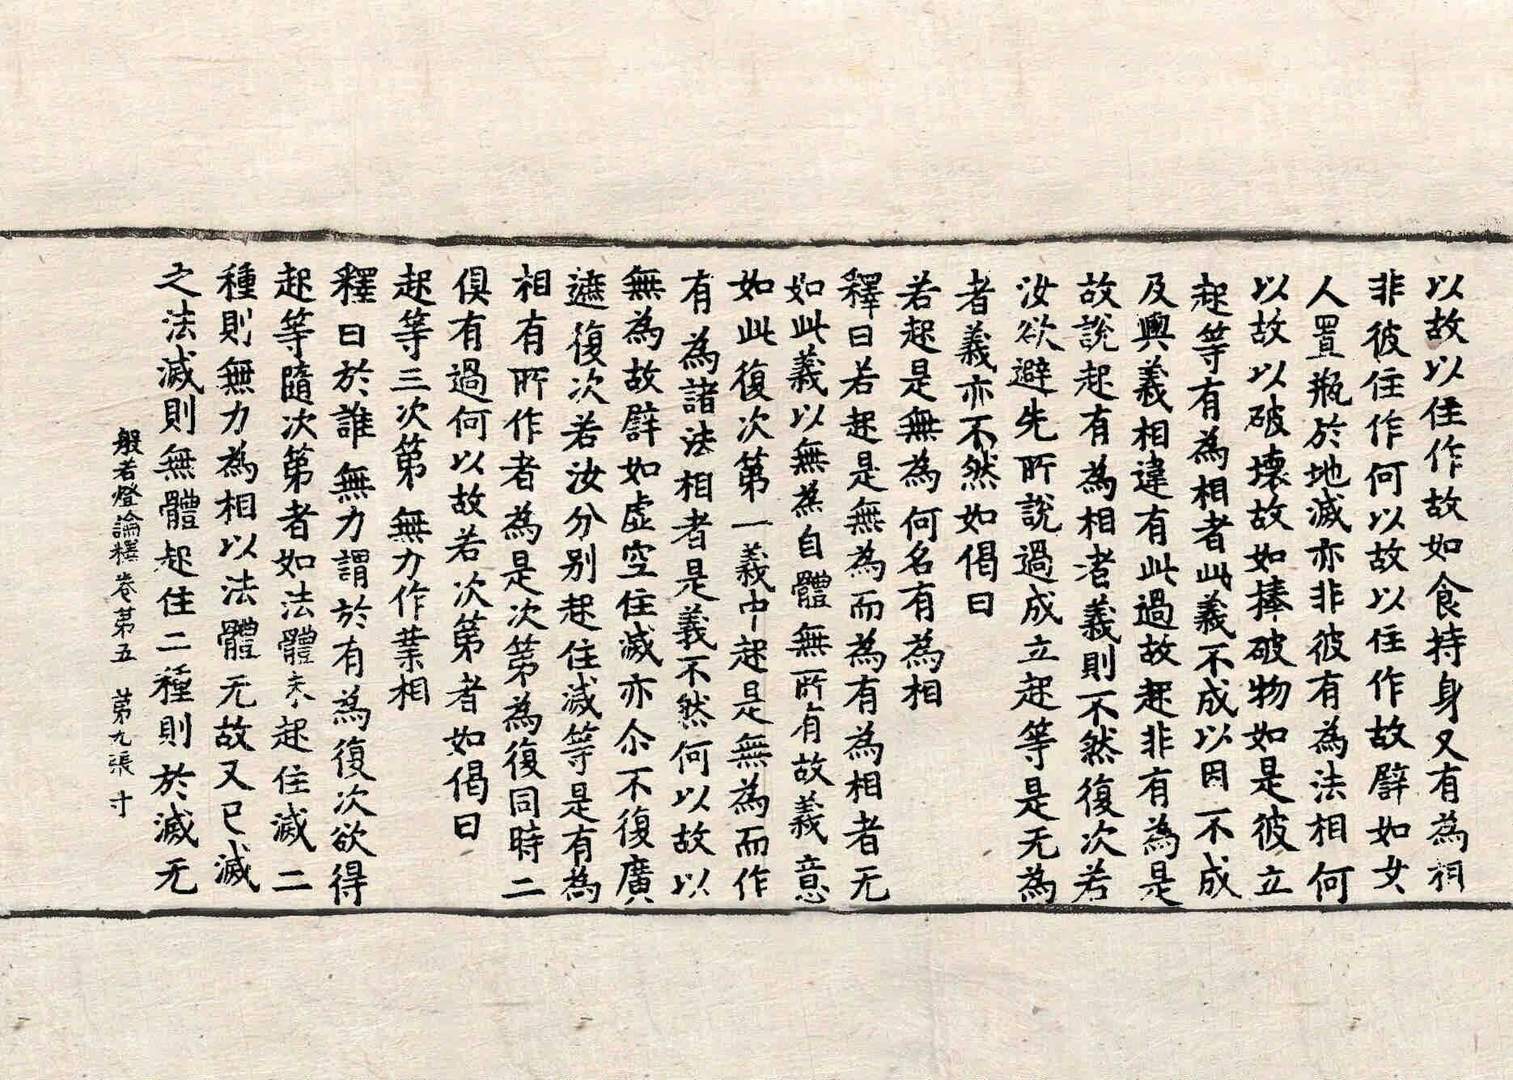 以故以住作故如食持身又有為相
非彼住作何以故以住作故譬如女
人置瓶於地滅亦非彼有為法相何
以故以破壞故如捧破物如是彼立
起等有為相者此義不成以因不成
及與義相違有此過故起非有為是
故說起有為相者義則不然復次若
汝欲避先所說過成立起等是无為
者義亦不然如偈曰
若起是無為何名有為相
釋曰若起是無為而為有為相者无
如此義以無為自體無所有故義意
如此復次第一義中起是無為而作
有為諸法相者是義不然何以故以
無為故譬如虛空住滅亦尒不復廣
遮復次若汝分別起住滅等是有為
相有所作者為是次第為復同時二
俱有過何以故若次第者如偈曰
起等三次第無力作業相
釋曰於誰無力謂於有為復次欲得
起等隨次第者如法體未起住滅二
種則無力為相以法體无故又已滅
之法滅則無體起住二種則於滅无
般若燈論釋卷第五 第九張 寸